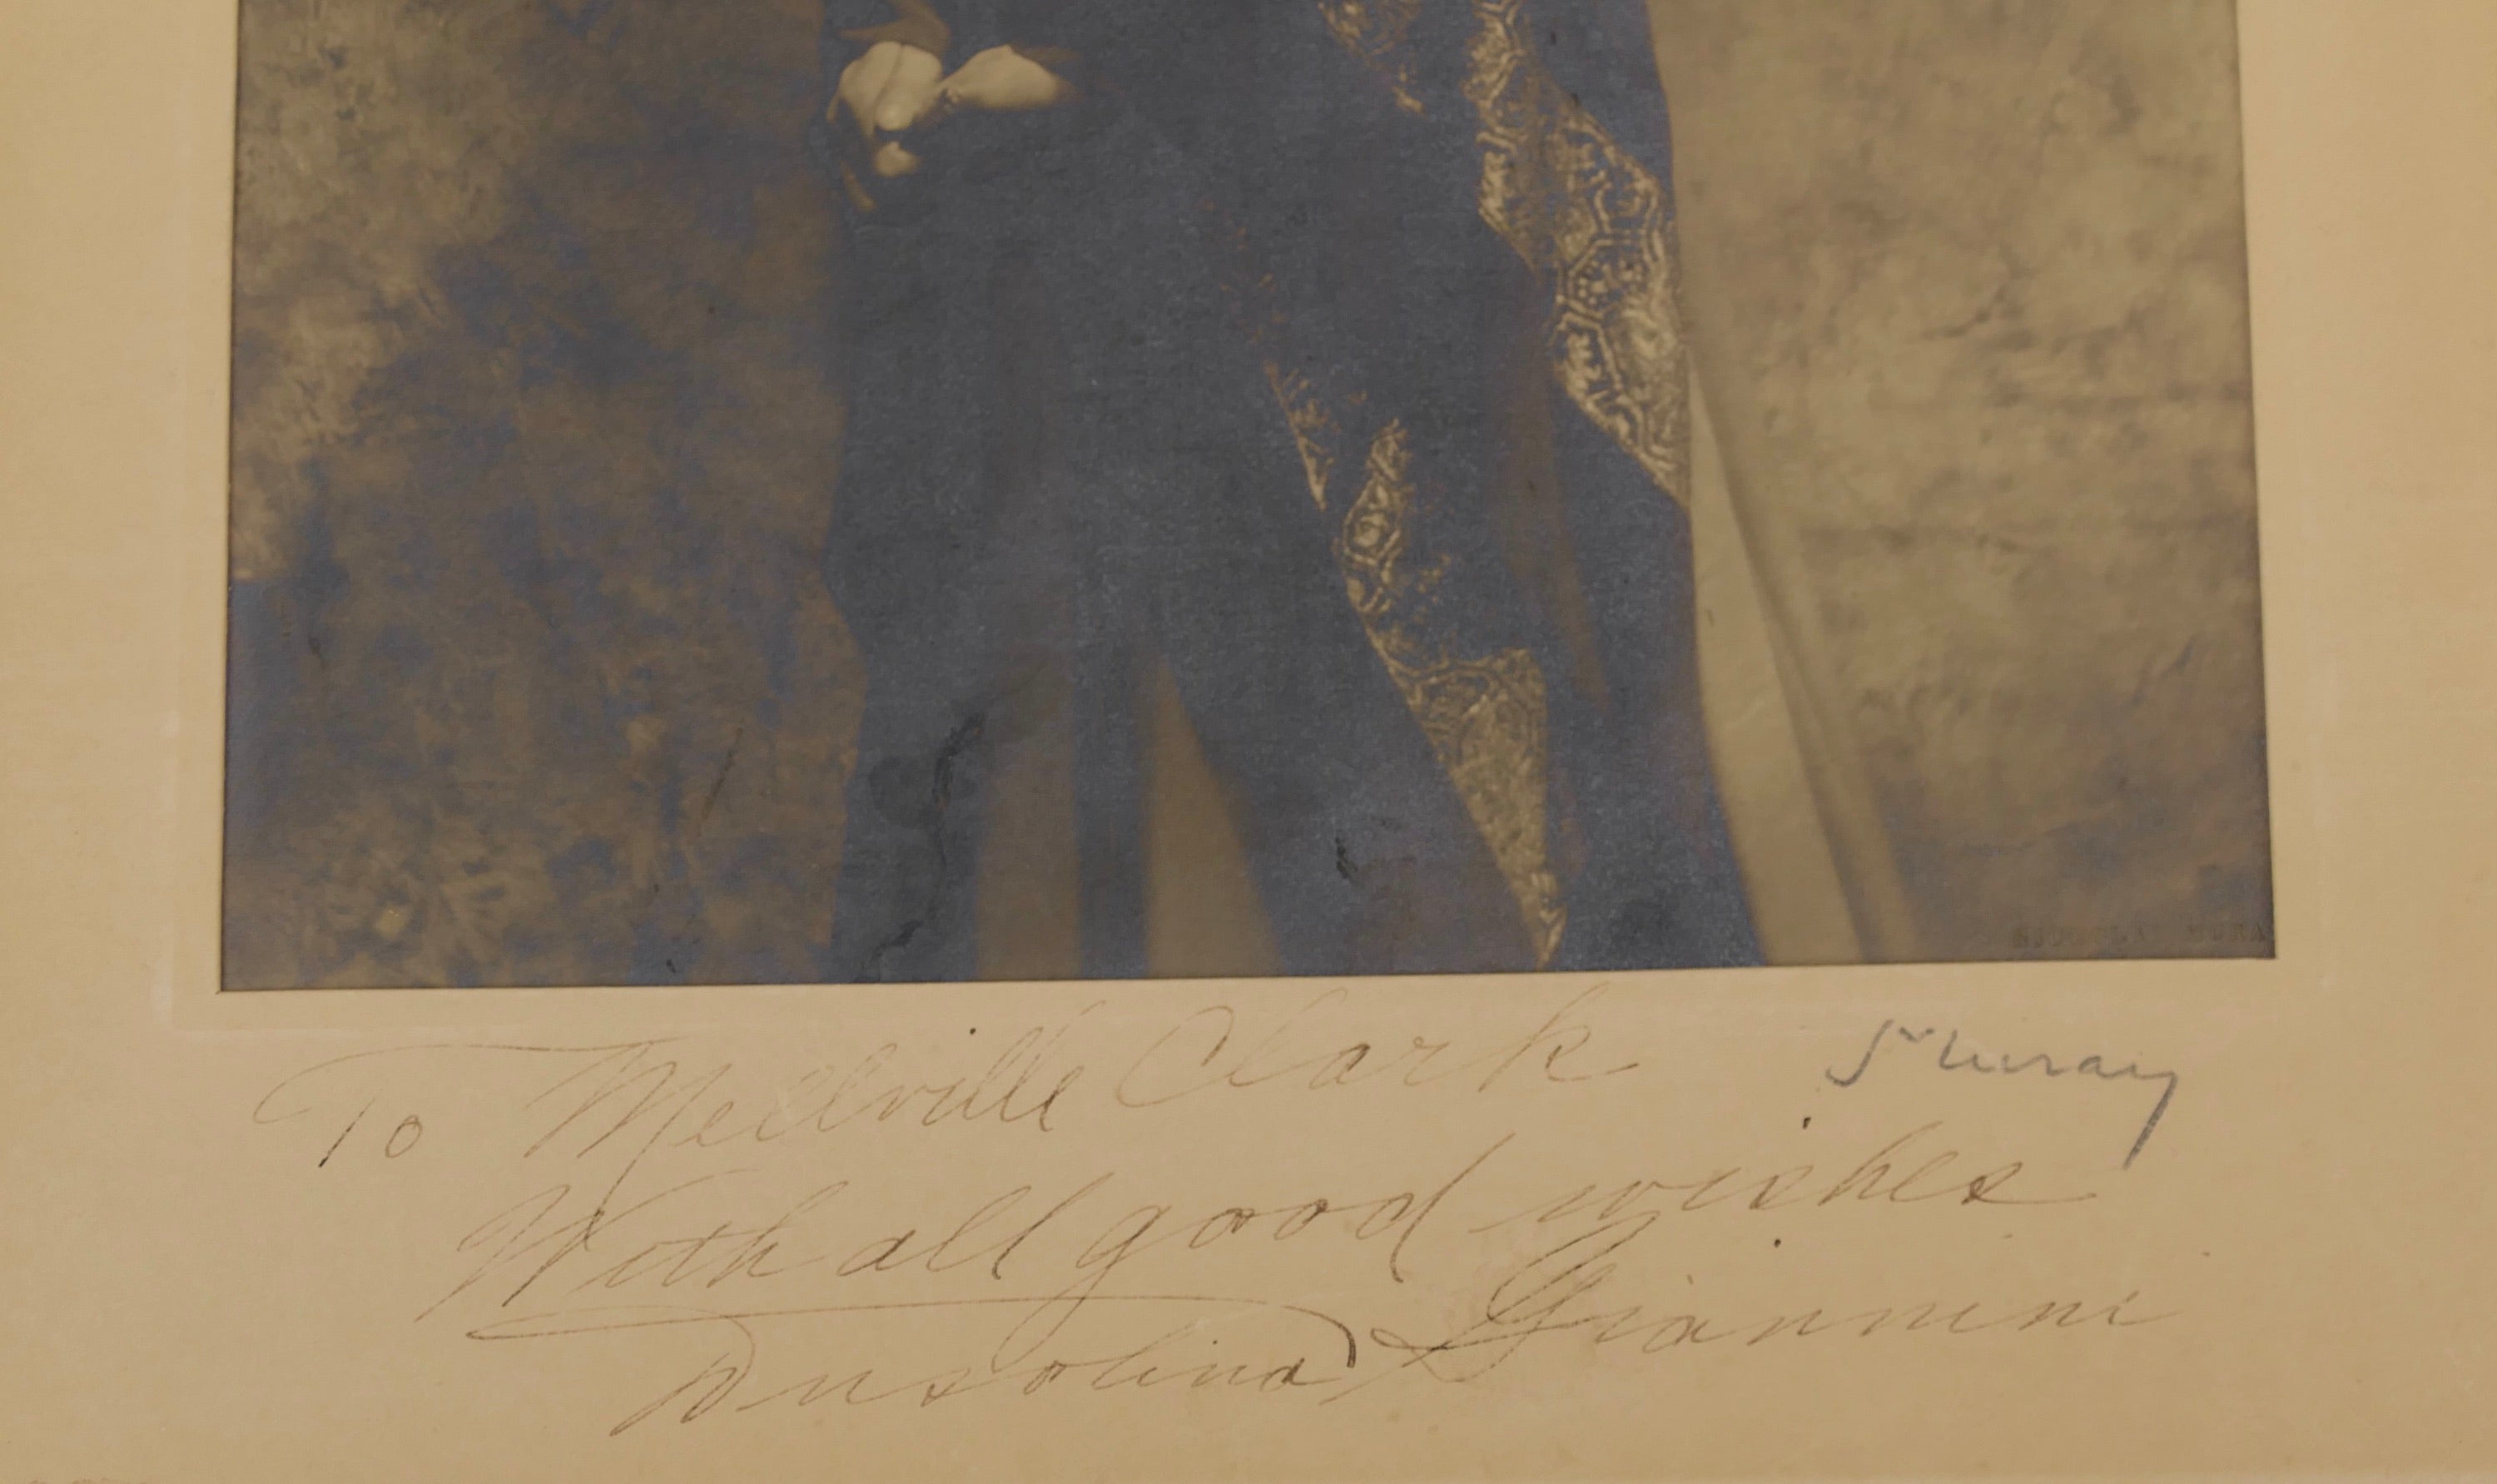 To Mellville Clark
Murray
With all good wishes
Dusolina Giannini